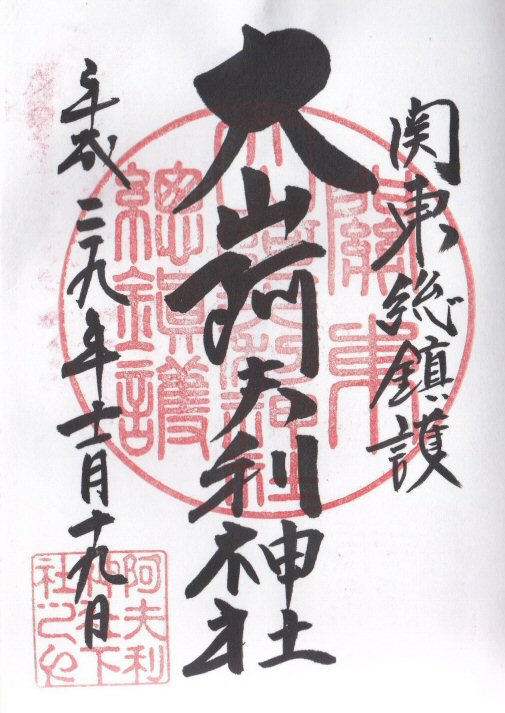 関東総鎮護
大山阿夫利神社
平成二九年十二月十九日
關東
大山阿夫利神社
總鎮護
阿夫利
神社下
社之印